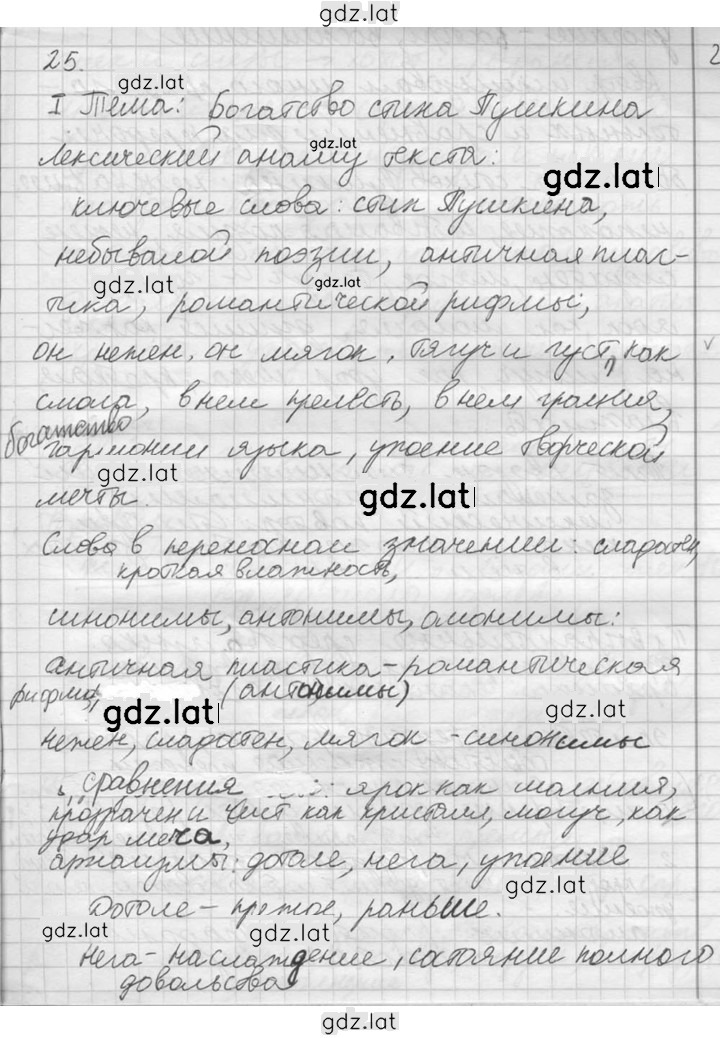 gdz.lat
25.
gdz.lat
I Тема: Богатство стиха Пушкина
gdz.lat
Лексический анализ текста:
gdz.lat
ключевые слова: стих Пушкина,
небывалой поэзии, античная плас-
gdz.lat
gdz.lat
тика, романтической рифмы,
он нежен, он мягок, тягуч и густ, как
смола, в нем прелесть, в нем грация,
богатство
гармонии языка, упоение творческой
gdz.lat
мечты.
gdz.lat
Слова в переносном значении: сладостен,
кроткая влажность,
синонимы, антонимы, омонимы:
античная пластика - романтическая
рифма, (антонимы)
gdz.lat
gdz.lat
нежен, сладостен, мягок - синонимы
сравнения : ярок как молния,
прозрачен и чист как кристалл, могуч, как
удар меча,
архаизмы: дотоле, нега, упоение
gdz.lat
Дотоле - прежде, раньше.
gdz.lat
gdz.lat
Нега - наслаждение, состояние полного
довольства
gdz.lat